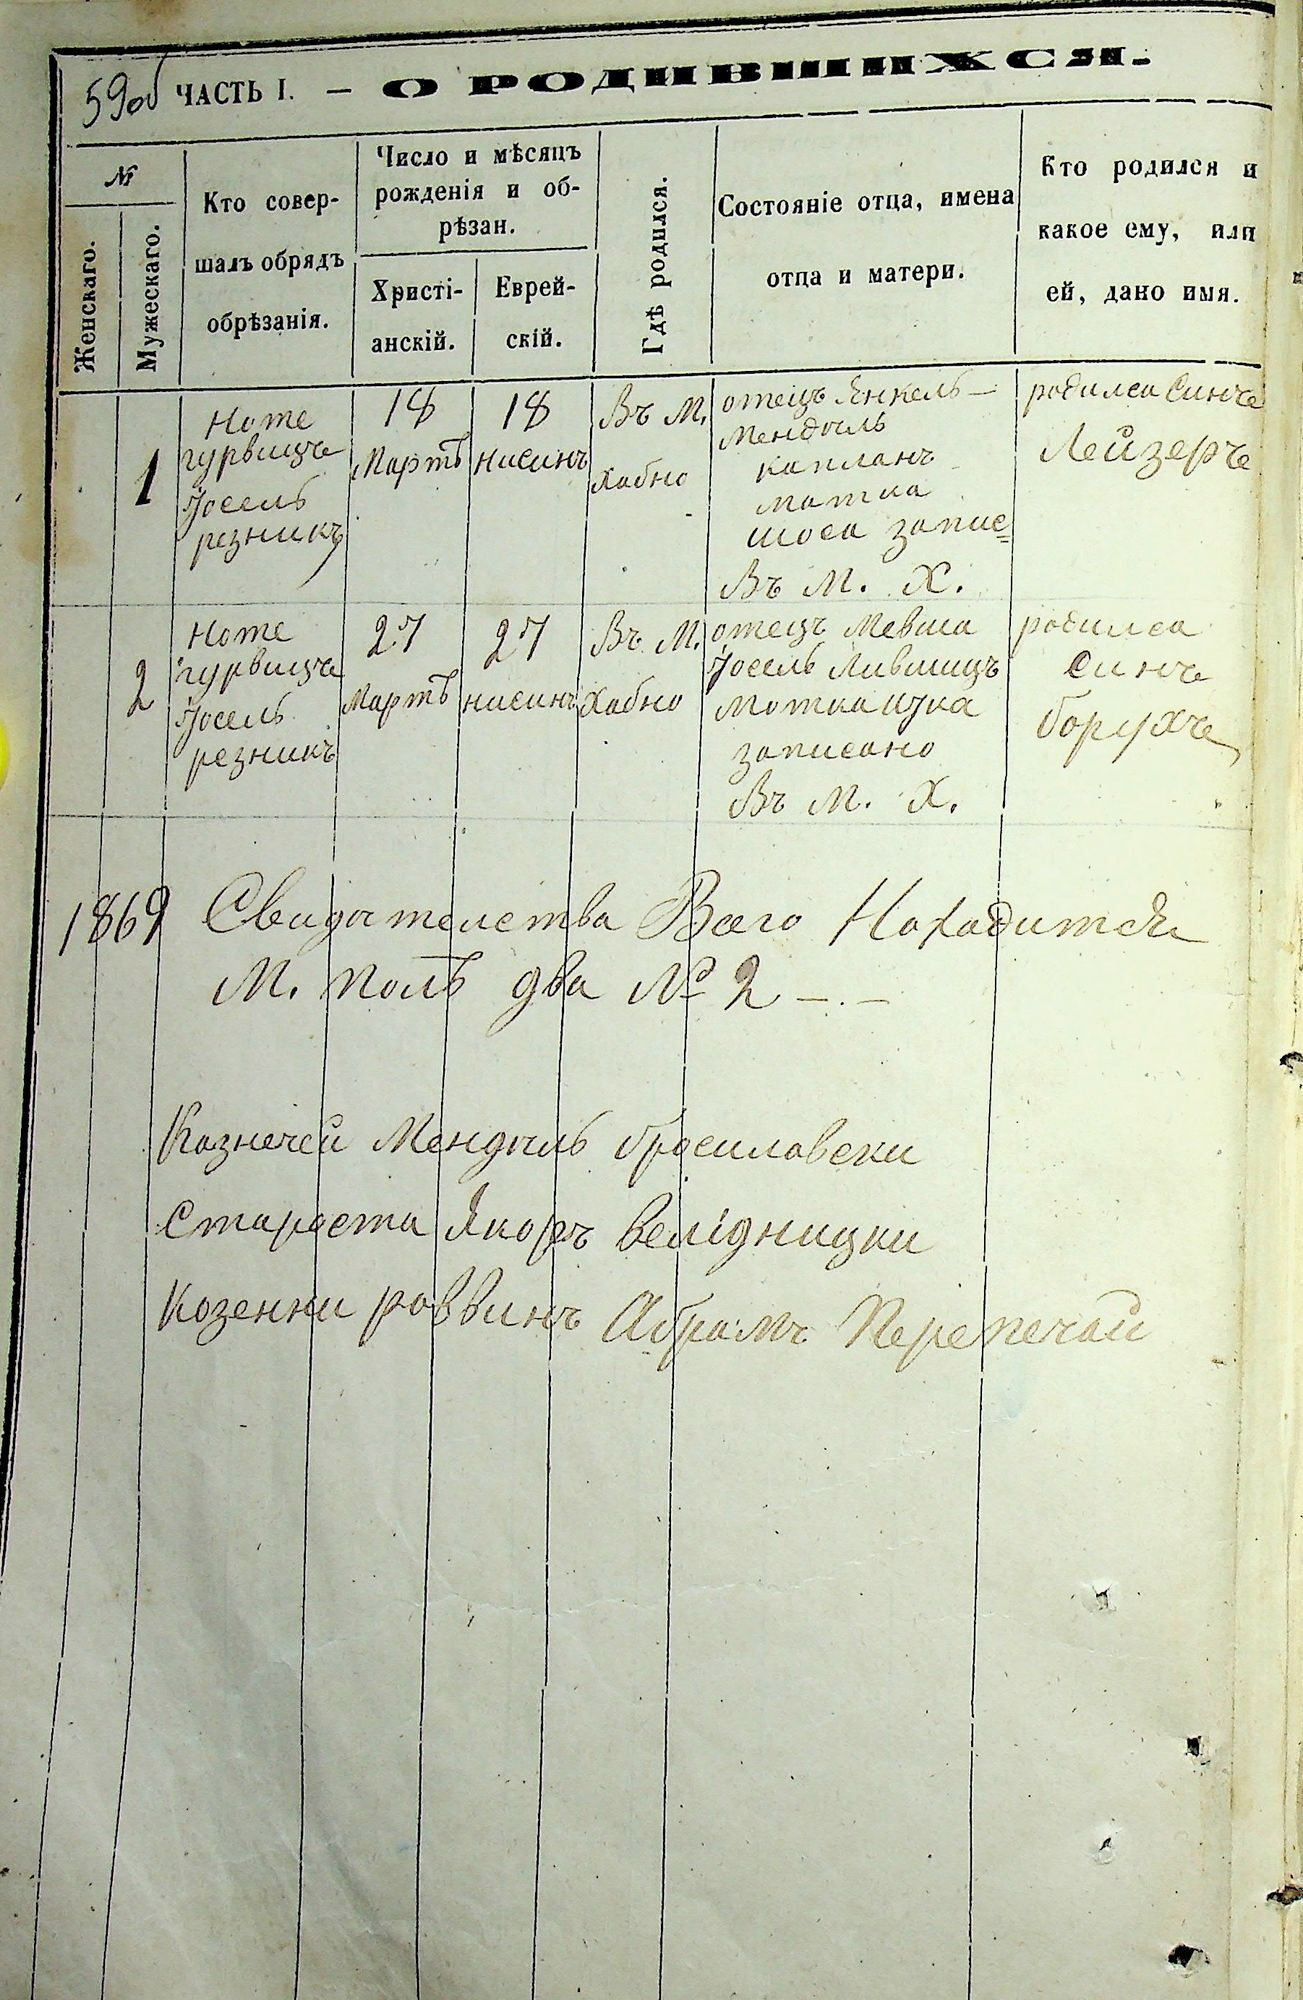 59об ЧАСТЬ I. — О РОДИВШИХСЯ.
№
Женскаго.
Мужескаго.
Кто совер-
шалъ обрядъ
обрѣзанія.
Число и мѣсяцъ
рожденія и об-
рѣзан.
Христі-
анскій.
Еврей-
скій.
Гдѣ родился.
Состояніе отца, имена
отца и матери.
Кто родился и
какое ему, или
ей, дано имя.
1
Ноте
гурвицъ
Іосель
резникъ
18
Мартъ
18
нисинъ
Въ М.
Хабно
отецъ Янкель—
Мендель
капланъ
матка
шоса запис=
Въ М. Х.
родилса Синъ
Лейзеръ
2
Ноте
гурвицъ
Іосель
резникъ
27
Мартъ
27
нисинъ
Въ М.
Хабно
отецъ Мевша
Іосель Лившицъ
Матка
записано
Въ М. Х.
родилса
Синъ
борухъ
1869 Свидателства Всего Находится
М. полъ два № 2 —.—
Казначей Мендель брасиловски
Староста велідницки
Козенни раввинъ Абрамъ Перепечай